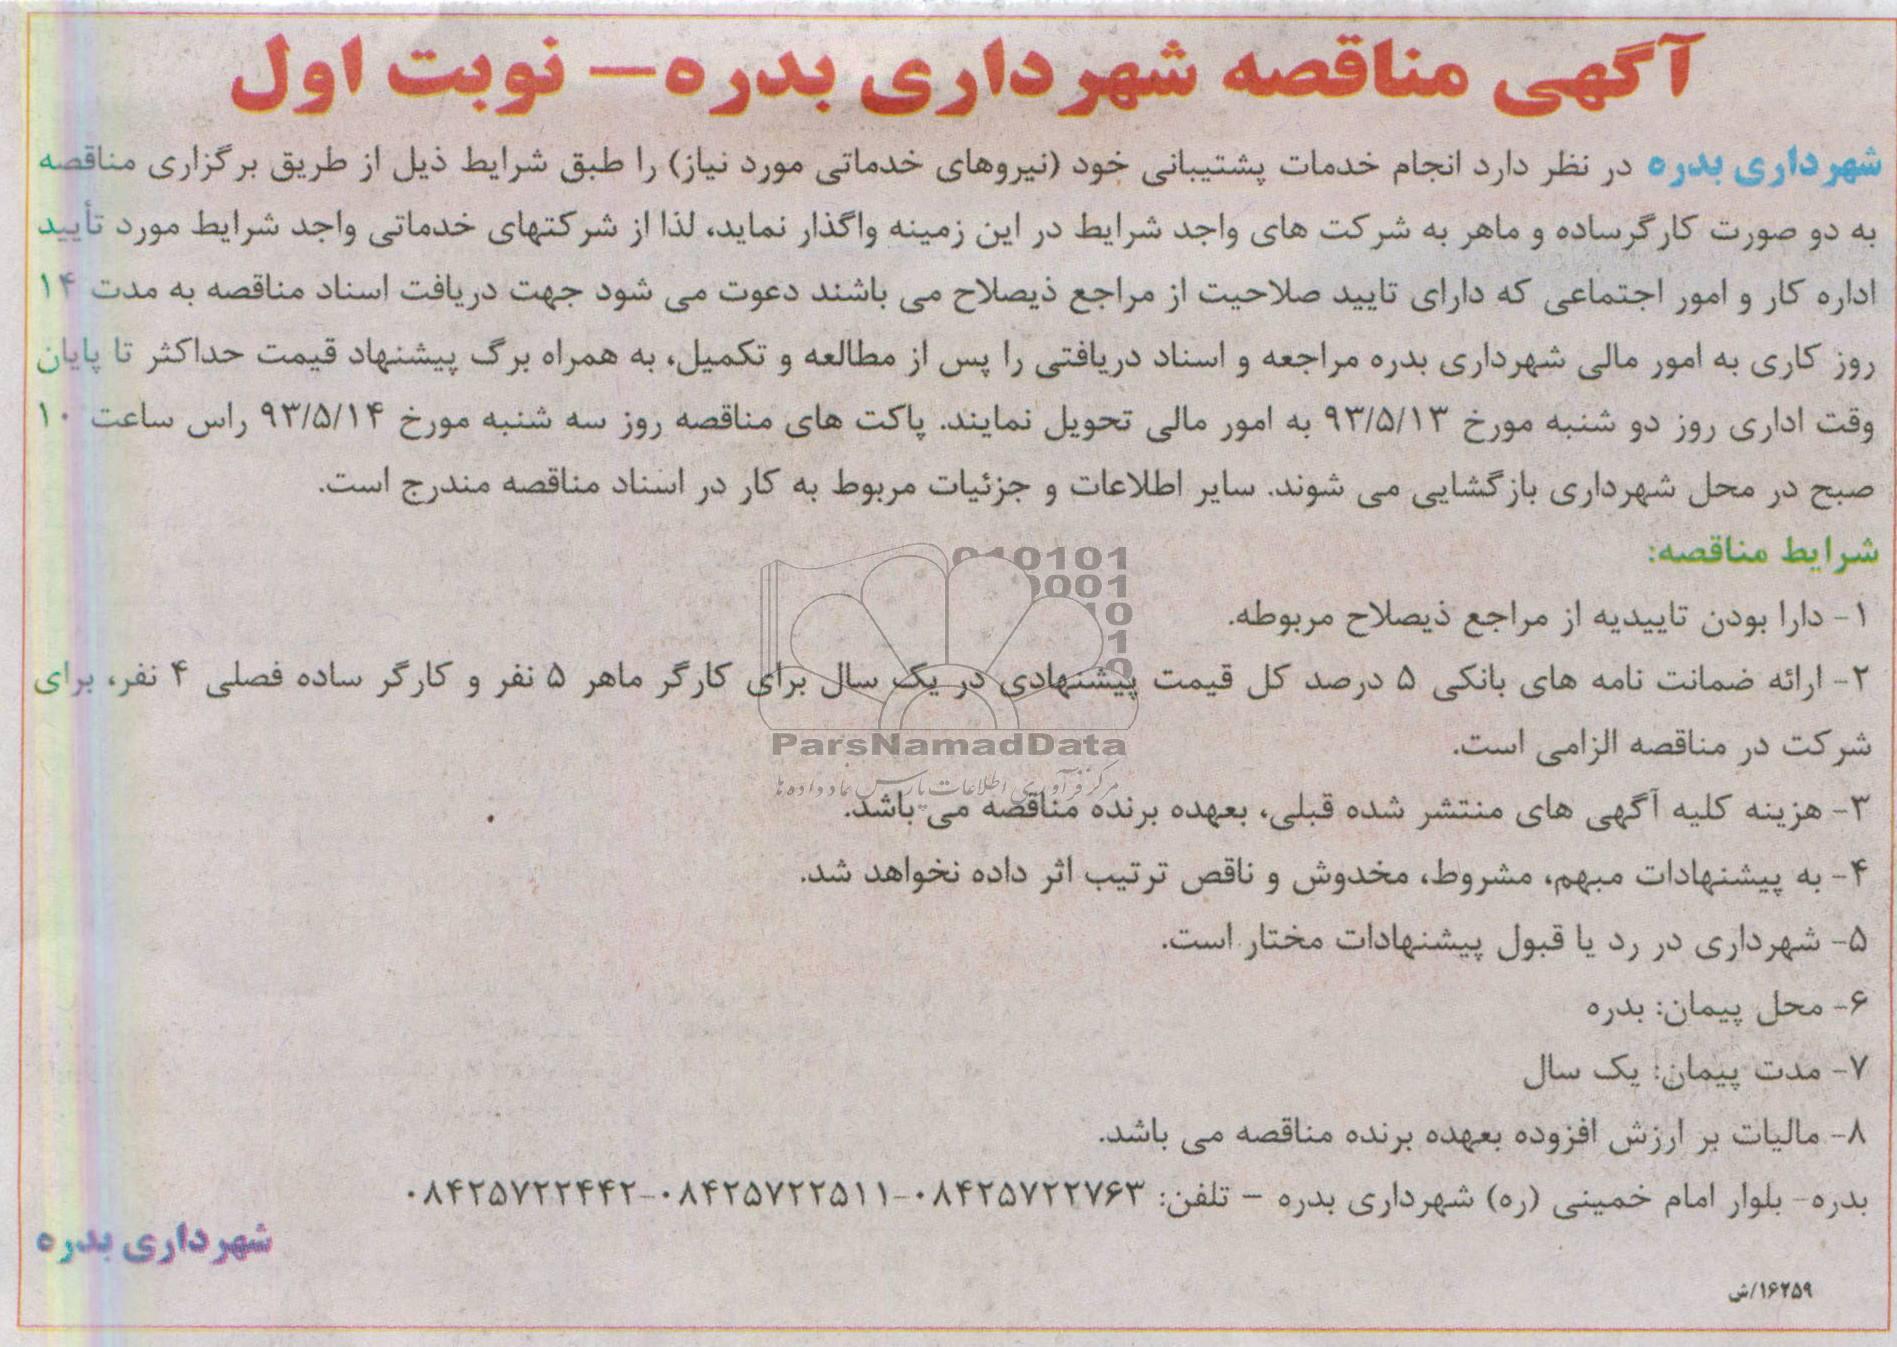 آگهی مناقصه شهرداری بدره – نوبت اول
شهرداری بدره در نظر دارد انجام خدمات پشتیبانی خود (نیروهای خدماتی مورد نیاز) را طبق شرایط ذیل از طریق برگزاری مناقصه
به دو صورت کارگرساده و ماهر به شرکت های واجد شرایط در این زمینه واگذار نماید، لذا از شرکتهای خدماتی واجد شرایط مورد تأیید
اداره کار و امور اجتماعی که دارای تایید صلاحیت از مراجع ذیصلاح می باشند دعوت می شود جهت دریافت اسناد مناقصه به مدت ۱۴
روز کاری به امور مالی شهرداری بدره مراجعه و اسناد دریافتی را پس از مطالعه و تکمیل، به همراه برگ پیشنهاد قیمت حداکثر تا پایان
وقت اداری روز دو شنبه مورخ ۹۳/۵/۱۳ به امور مالی تحویل نمایند. پاکت های مناقصه روز سه شنبه مورخ ۹۳/۵/۱۴ راس ساعت ۱۰
صبح در محل شهرداری بازگشایی می شوند. سایر اطلاعات و جزئیات مربوط به کار در اسناد مناقصه مندرج است.
شرایط مناقصه:
۱- دارا بودن تاییدیه از مراجع ذیصلاح مربوطه.
۲- ارائه ضمانت نامه های بانکی ۵ درصد کل قیمت پیشنهادی در یک سال برای کارگر ماهر ۵ نفر و کارگر ساده فصلی ۴ نفر، برای
شرکت در مناقصه الزامی است.
۳- هزینه کلیه آگهی های منتشر شده قبلی، بعهده برنده مناقصه می باشد.
۴- به پیشنهادات مبهم، مشروط، مخدوش و ناقص ترتیب اثر داده نخواهد شد.
۵- شهرداری در رد یا قبول پیشنهادات مختار است.
۶- محل پیمان: بدره
۷- مدت پیمان: یک سال
۸- مالیات بر ارزش افزوده بعهده برنده مناقصه می باشد.
بدره- بلوار امام خمینی (ره) شهرداری بدره – تلفن: ۰۸۴۲۵۷۲۲۷۶۳-۰۸۴۲۵۷۲۲۵۱۱-۰۸۴۲۵۷۲۲۴۴۲
شهرداری بدره
۱۶۲۵۹/ش
010101
0001
10
1
0
ParsNamadData
مرکز فرآوری اطلاعات پارس نماد داده ها